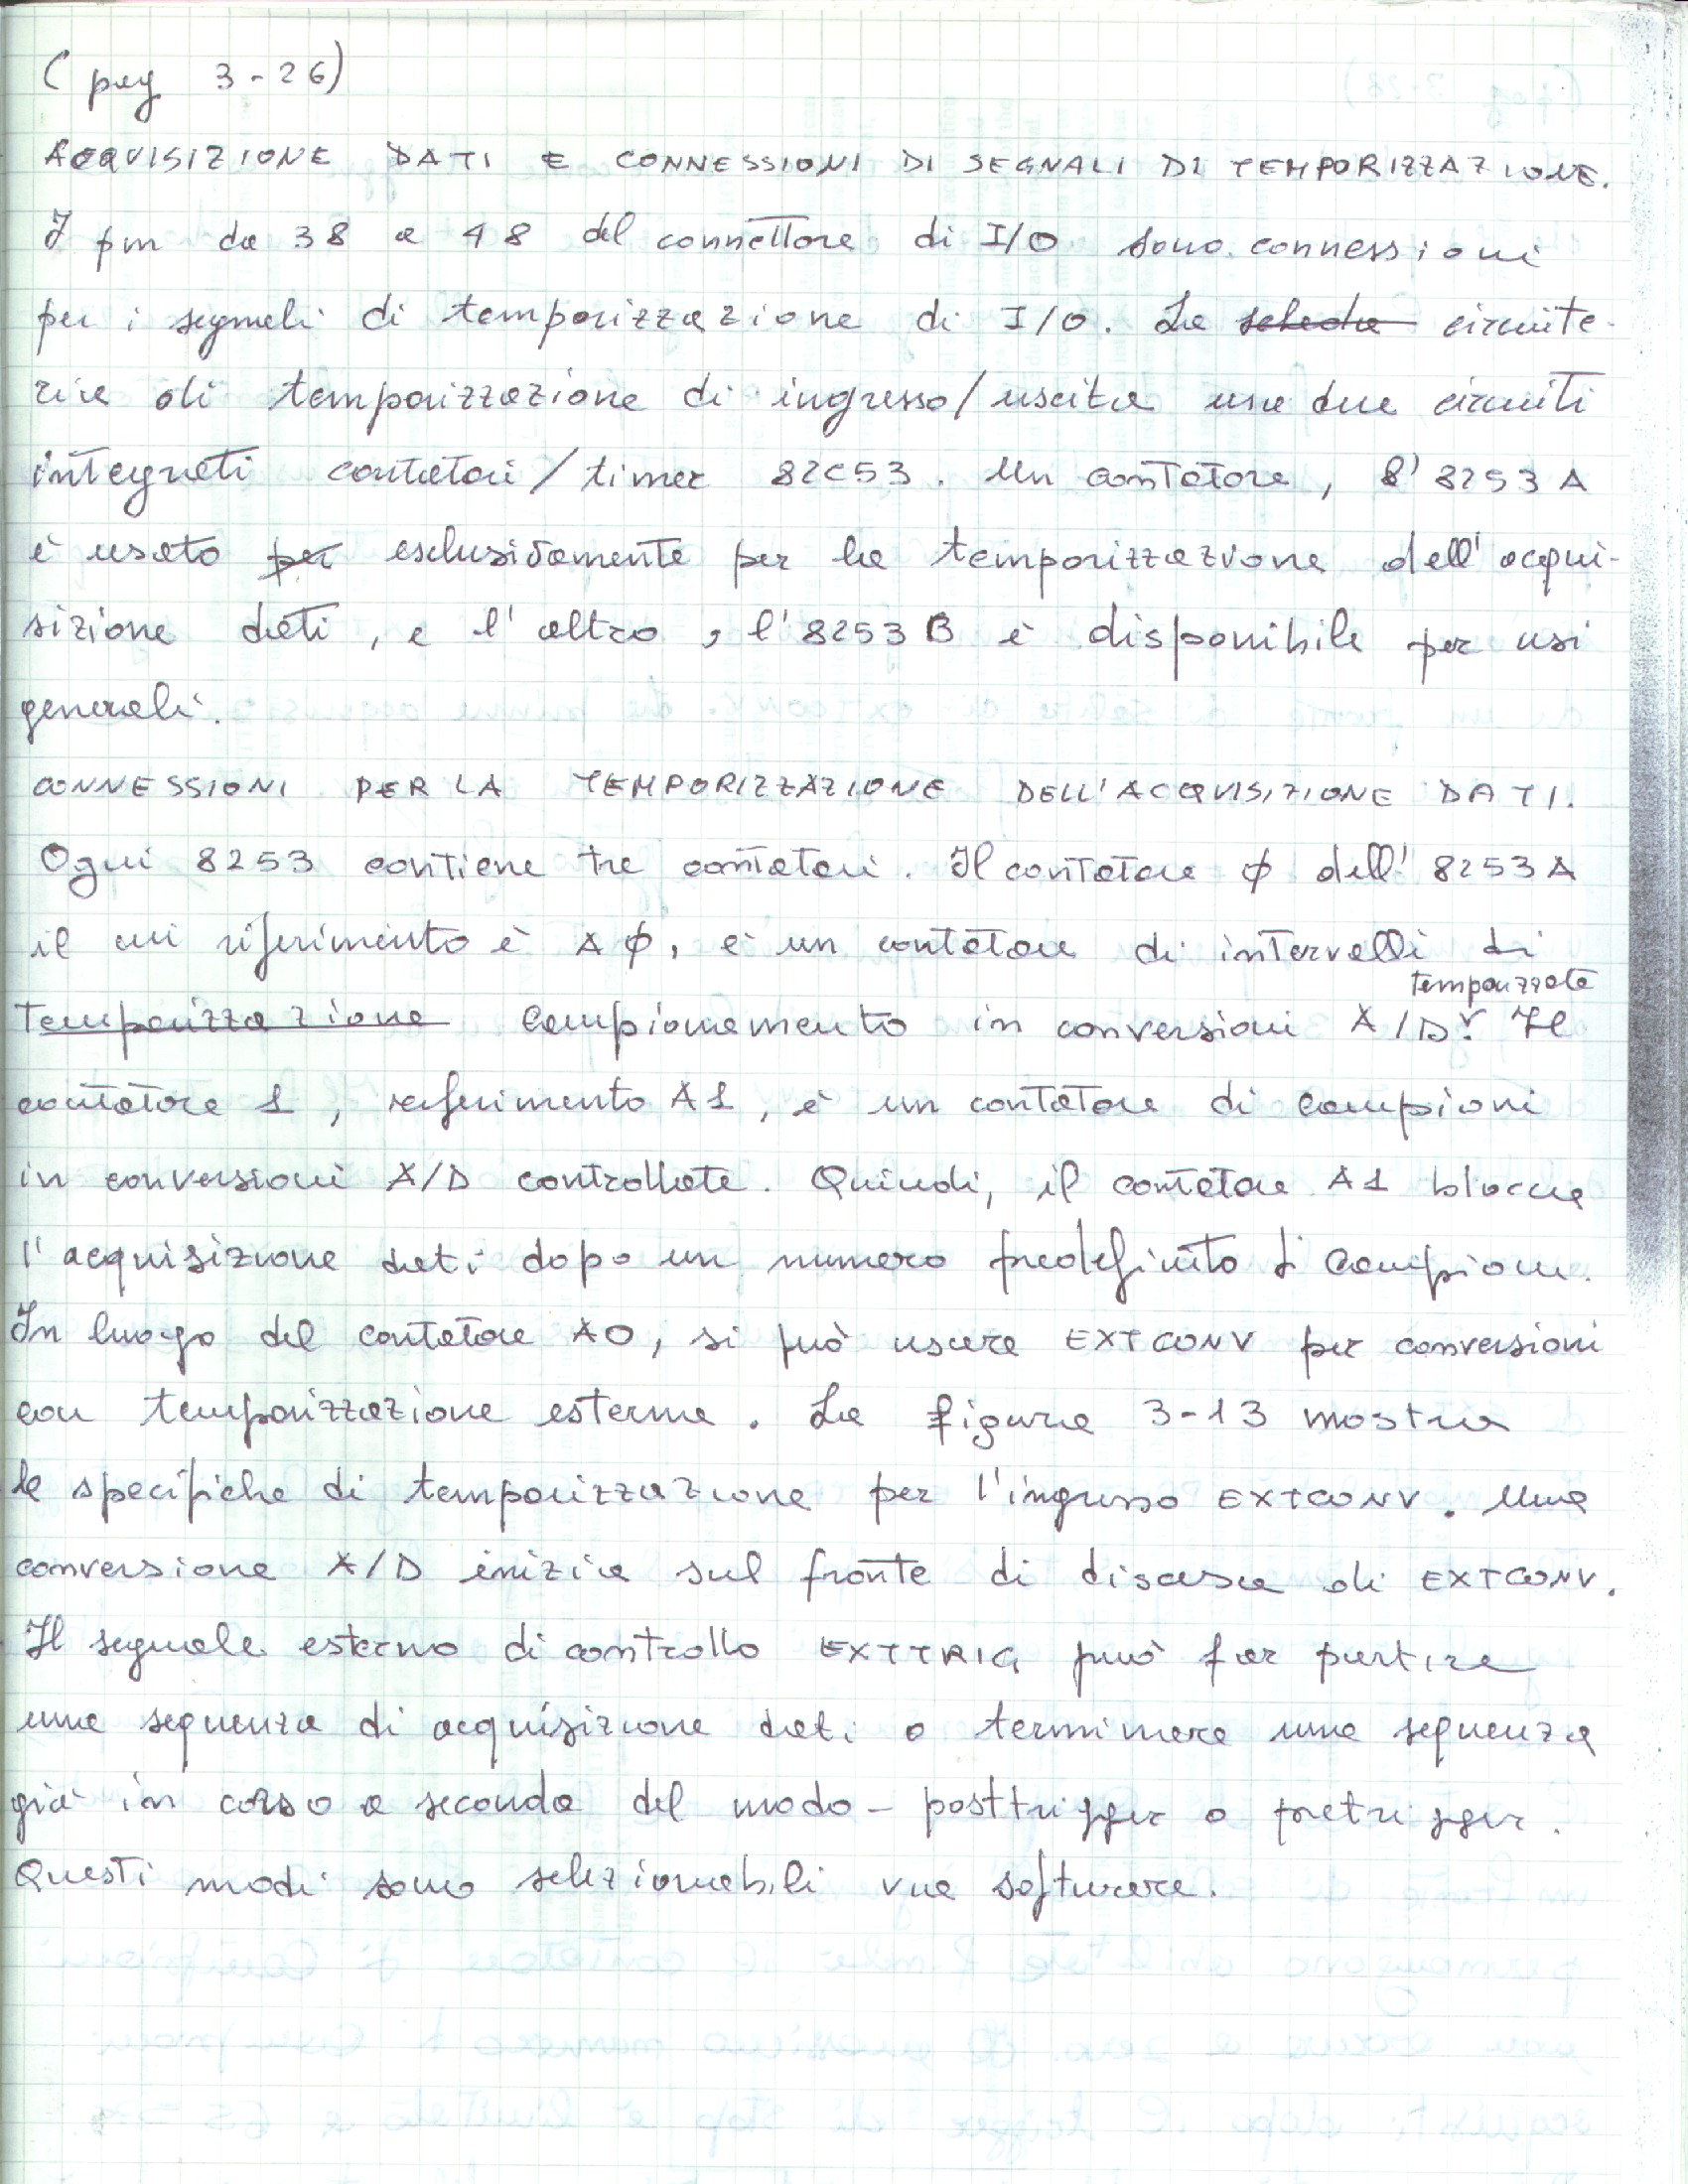 (pag 3-26)
ACQUISIZIONE DATI E CONNESSIONI DI SEGNALI DI TEMPORIZZAZIONE.
I pin da 38 a 48 del connettore di I/O sono connessioni
per i segnali di temporizzazione di I/O. La scheda circuite-
ria di temporizzazione di ingresso/uscita usa due circuiti
integrati contatori/timer 82C53. Un contatore, l'8253A
è usato per esclusivamente per la temporizzazione dell'acqui-
sizione dati, e l'altro, l'8253B è disponibile per usi
generali.
CONNESSIONI PER LA TEMPORIZZAZIONE DELL'ACQUISIZIONE DATI.
Ogni 8253 contiene tre contatori. Il contatore ϕ dell'8253A
il cui riferimento è Aϕ, è un contatore di intervalli di
temporizzate
Temporizzazione campionamento in conversioni A/D. Il
contatore 1, riferimento A1, è un contatore di campioni
in conversioni A/D controllate. Quindi, il contatore A1 blocca
l'acquisizione dati dopo un numero predefinito di campioni.
In luogo del contatore A0, si può usare EXTCONV per conversioni
con temporizzazione esterna. La figura 3-13 mostra
le specifiche di temporizzazione per l'ingresso EXTCONV. Una
conversione A/D inizia sul fronte di discesa di EXTCONV.
Il segnale esterno di controllo EXTTRIG può far partire
una sequenza di acquisizione dati o terminare una sequenza
già in corso a seconda del modo - posttrigger o pretrigger.
Questi modi sono selezionabili via software.